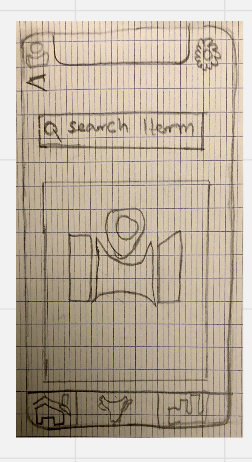 search Iterm